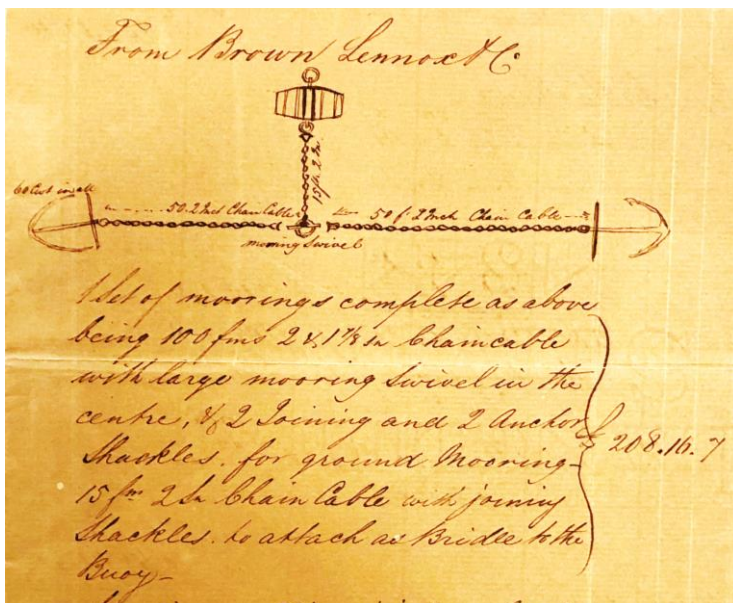 From Brown Lennox & Co
15 fm 2 In.
60 Cwt in all
50.2 Inch Chain Cable
50 f. 2 Inch Chain Cable
mooring Swivel
1 Set of moorings complete as above
being 100 fms 2 & 1 7/8 In Chain cable
with large mooring Swivel in the
centre, & 2 Joining and 2 Anchor
Shackles. for ground Mooring-
15 fms 2 In Chain Cable with joining
Shackles. to attach as Bridle to the
Buoy-
£ 208.16.7